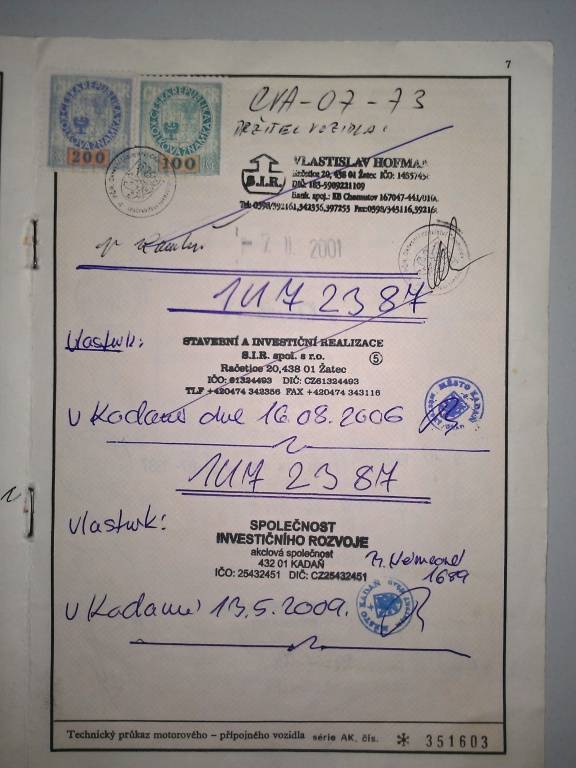 7
ČESKÁ REPUBLIKA
KOLKOVÁ ZNÁMKA
200
ČESKÁ REPUBLIKA
KOLKOVÁ ZNÁMKA
100
CVA-07-73
DRŽITEL VOZIDLA:
S.I.R.
VLASTISLAV HOFMA
Račetice 20, 438 01 Žatec IČO:
DIČ: 183-5909221109
Bank. spoj.: KB Chomutov 167047-441/010
Tel: 0398/392161,342356,397253 Fax:0398/343116,39216
- 7. 11. 2001
1U7 2387
Vlastník:
STAVEBNÍ A INVESTIČNÍ REALIZACE
S.I.R. spol. s r.o.
5
Račetice 20,438 01 Žatec
IČO: 61324493 DIČ: CZ61324493
TLF +420474 342356 FAX +420474 343116
MĚSTO KADAŇ
V Kadani dne 16.08.2006
1U7 2387
vlastník:
SPOLEČNOST
INVESTIČNÍHO ROZVOJE
akciová společnost
432 01 KADAŇ
IČO: 25432451 DIČ: CZ25432451
1689
v Kadani 13.5.2009.
MĚSTO KADAŇ
Technický průkaz motorového – přípojného vozidla série AK, čís. * 351603